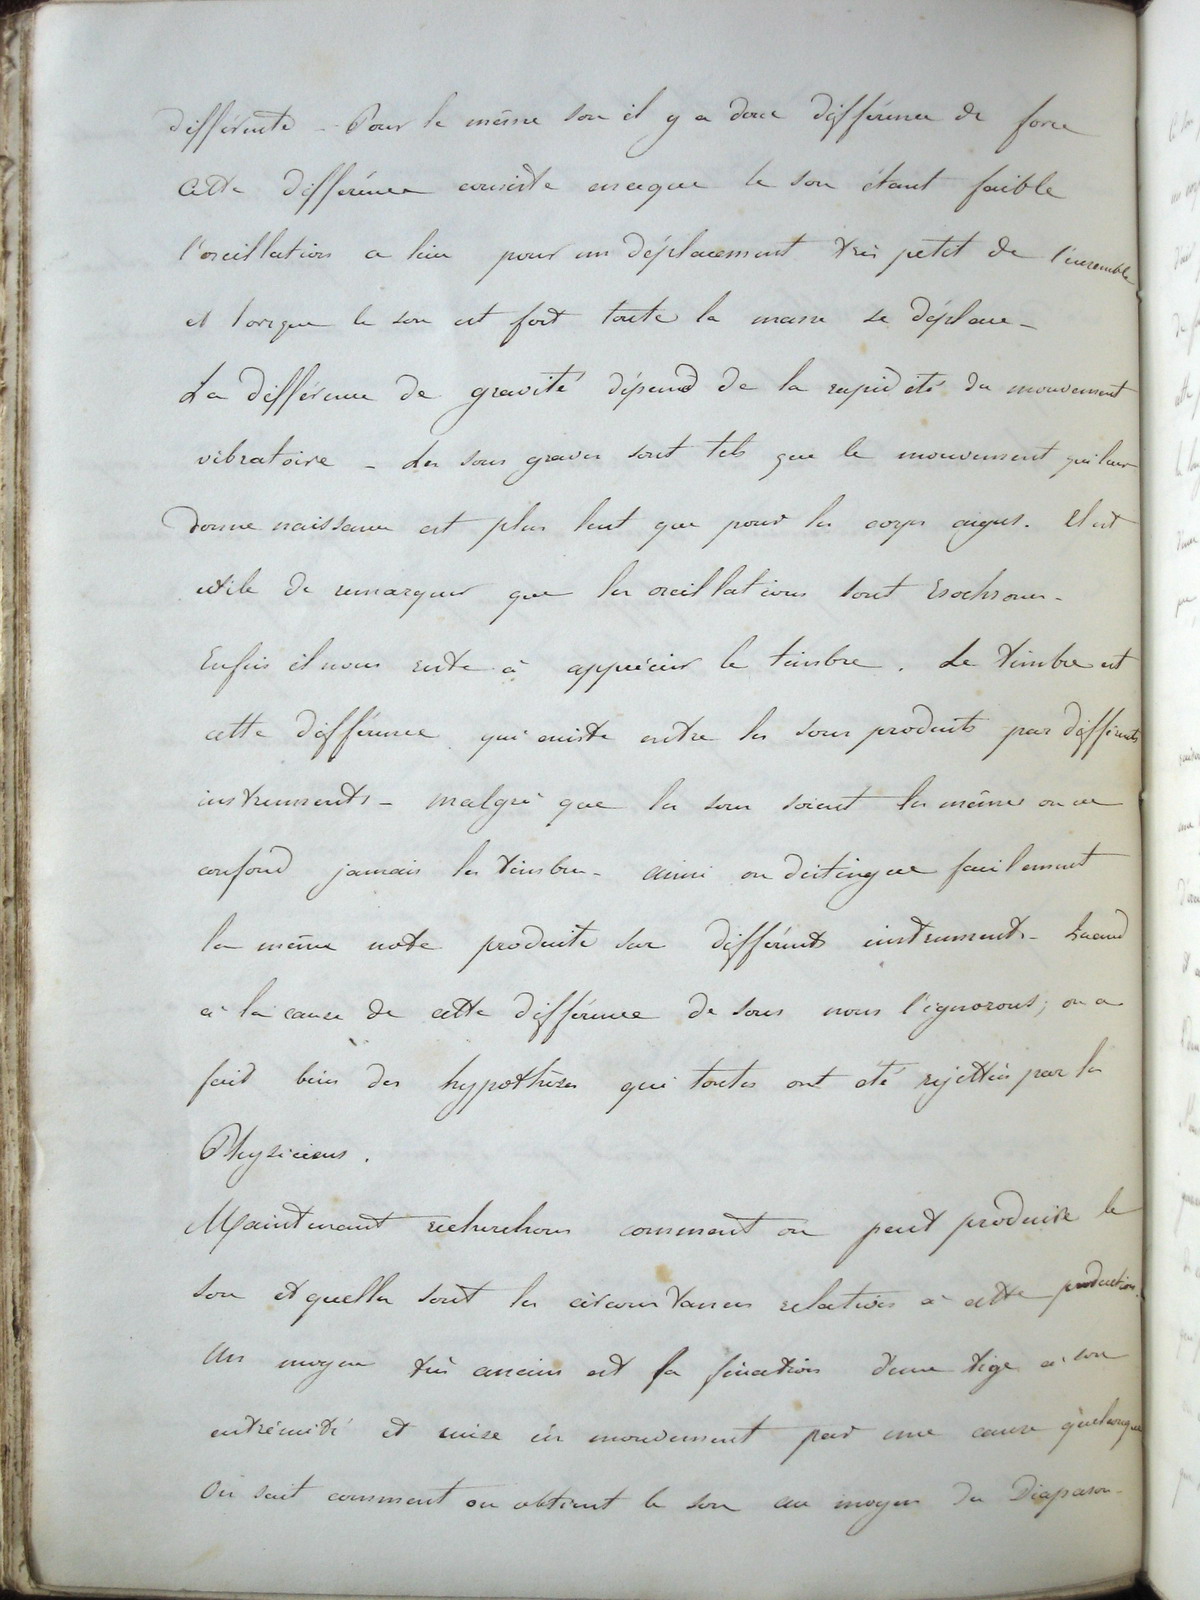 différente - Pour le même son il y a donc différence de force
Cette différence consiste en ce que le son étant faible
l'oscillation a lieu pour un déplacement très petit de l'ensemble
et lorsque le son est fort toute la masse se déplace -
La différence de gravité dépend de la rapidité du mouvement
vibratoire - Les sons graves sont tels que le mouvement qui leur
donne naissance est plus lent que pour les corps aigus. Il est
utile de remarquer que les oscillations sont Isochrones -
Enfin il nous reste à apprécier le timbre. Le timbre est
cette différence qui existe entre les sons produits par différents
instruments - malgré que les sons soient les mêmes on ne
confond jamais les timbres - ainsi on distingue facilement
la même note produite sur différents instruments - Quand
à la cause de cette différence de sons nous l'ignorons; on a
fait bien des hypothèses qui toutes ont été rejettées par les
Physiciens.
Maintenant recherchons comment on peut produire le
son et quelles sont les circonstances relatives à cette production.
Un moyen très ancien est la fixation d'une tige à son
extrémité et mise en mouvement par une cause quelconque
On sait comment on obtient le son au moyen du Diapason -